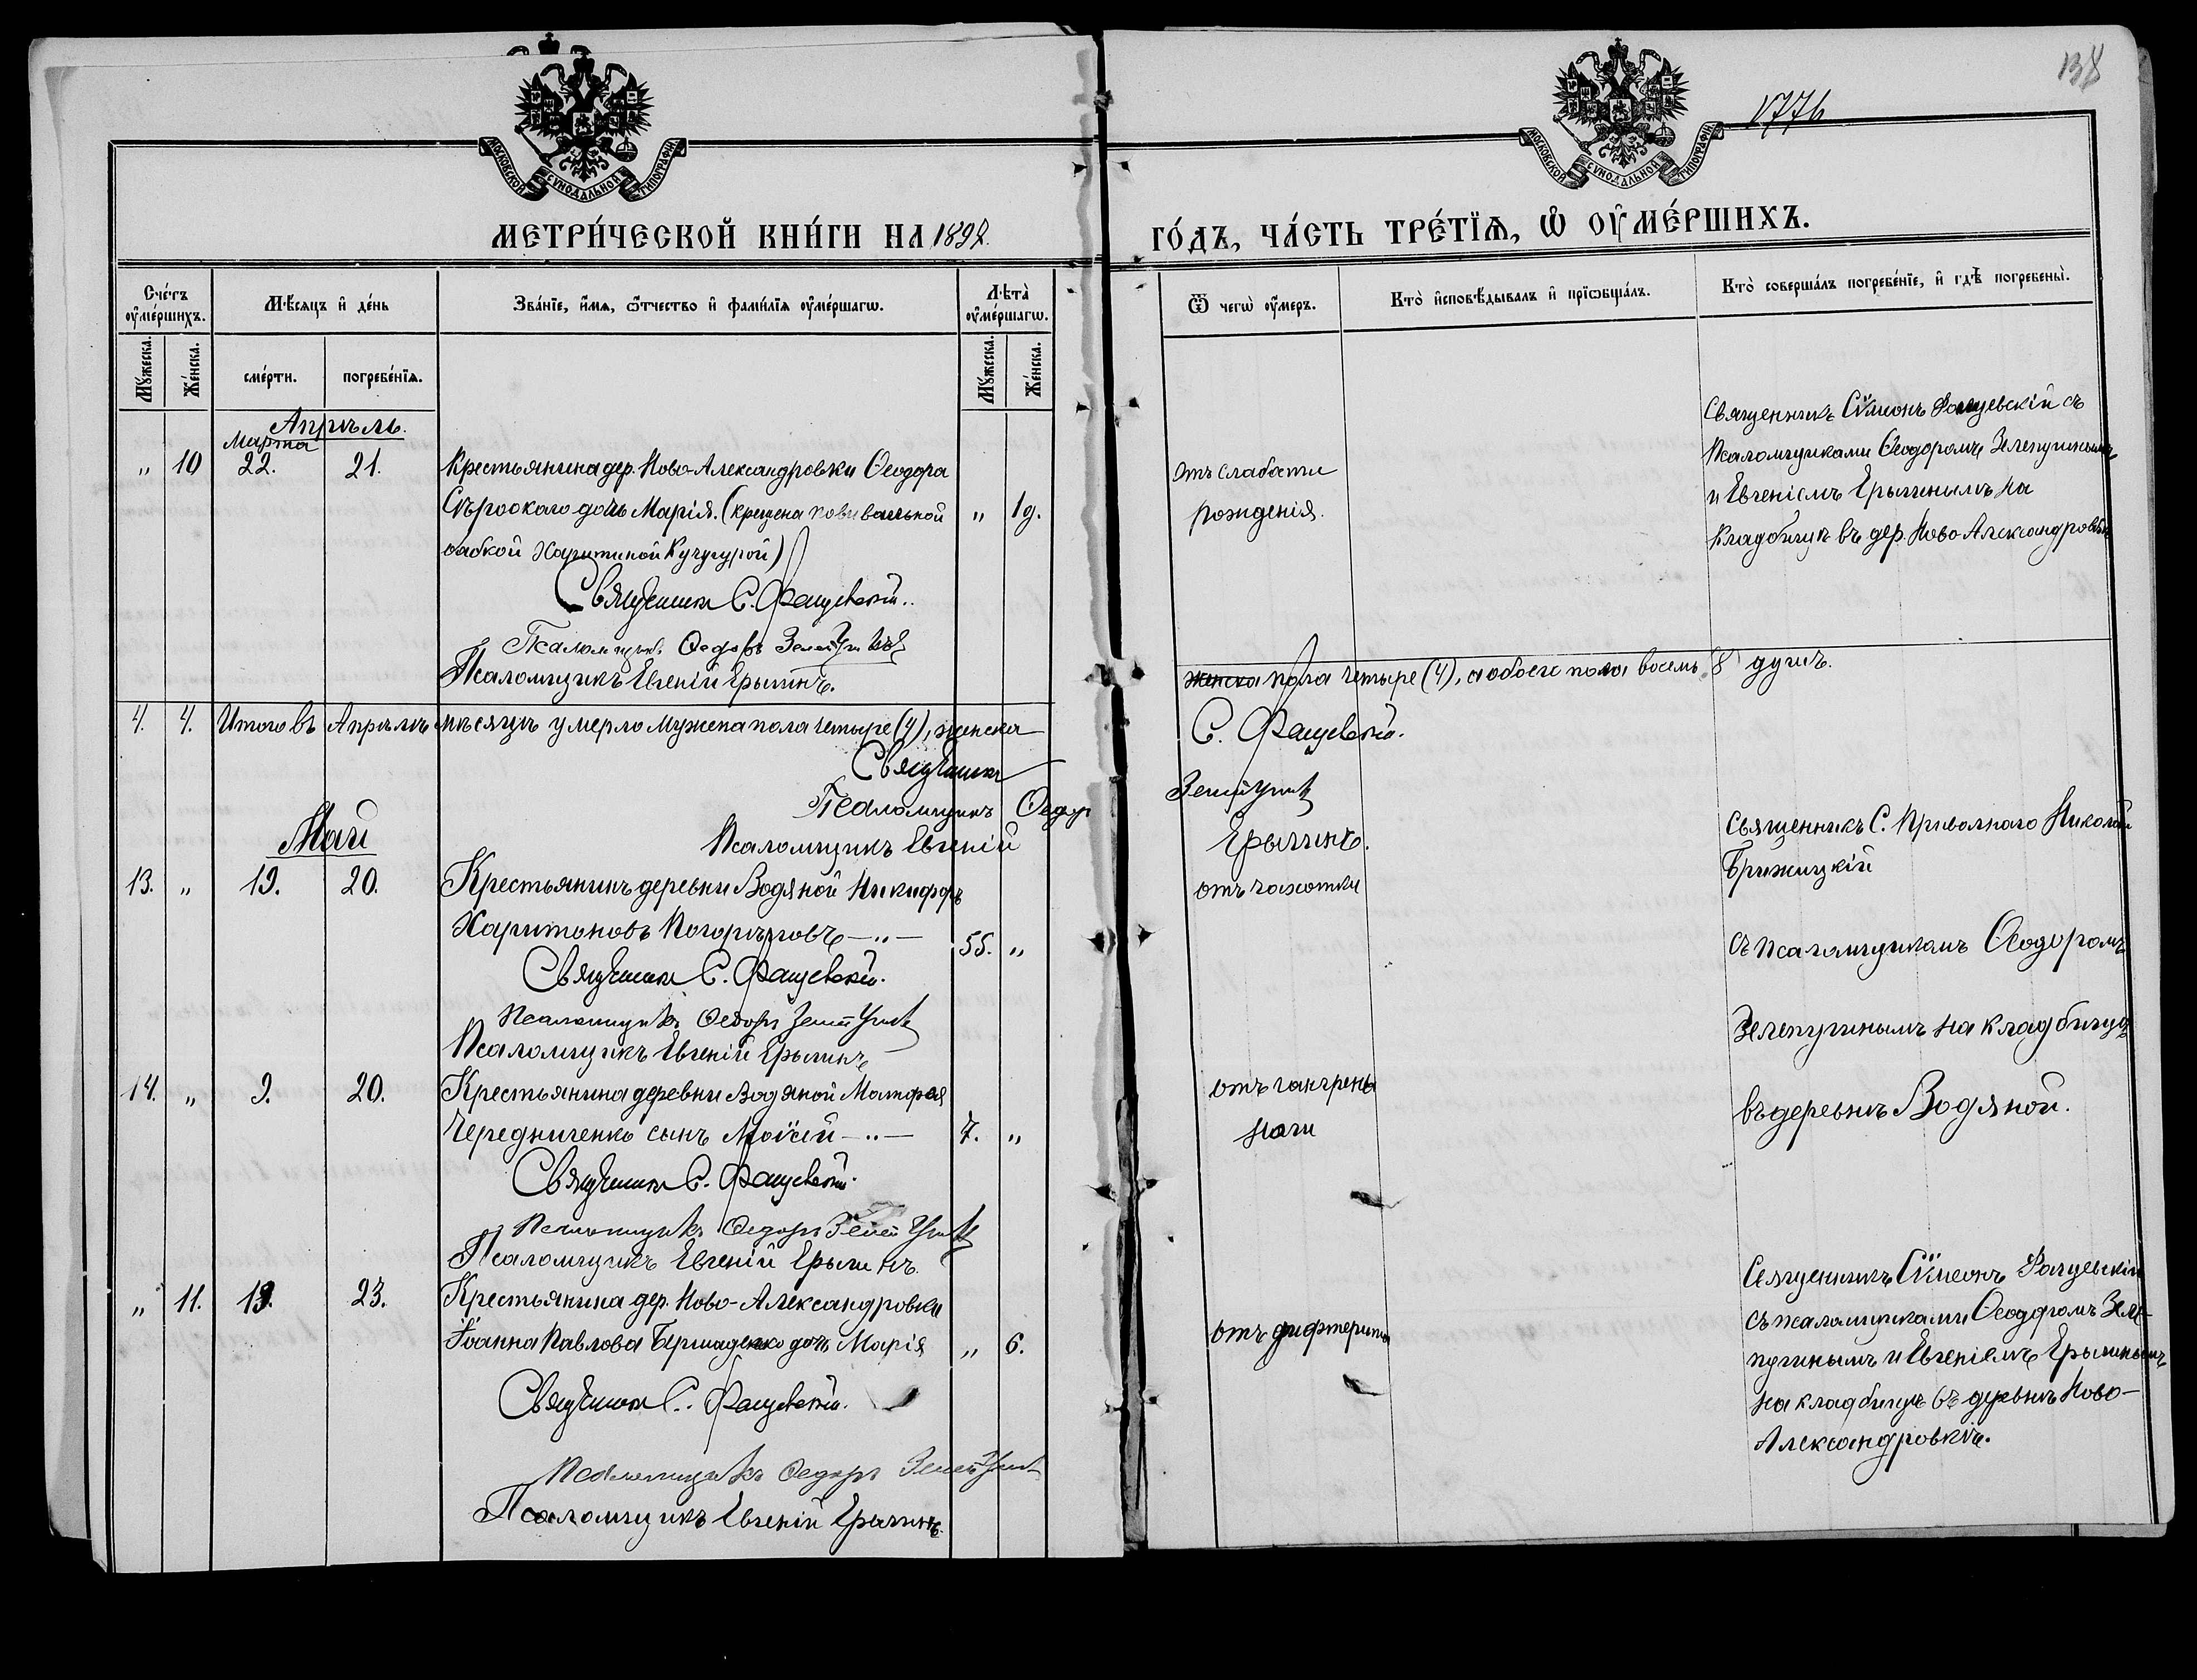 138
1776
МОСКОВСКОЙ СѴНОДАЛЬНОЙ ТИПОГРАФІИ
МОСКОВСКОЙ СѴНОДАЛЬНОЙ ТИПОГРАФІИ
МЕТРИ́ЧЕСКОЙ КНИ́ГИ НА 1892.
ГО́ДЪ, ЧА́СТЬ ТРЕ́ТІѦ, Ѡ ОУ҆МЕ́РШИХЪ.
Сче́тъ оу҆ме́ршихъ.
Мѣ́сяцъ и҆ де́нь
Зва́нїе, и҆́мя, ѻ҆́тчество и҆ фами́лїя оу҆ме́ршагѡ.
Лѣта̀ оу҆ме́ршагѡ.
Ѿ чегѡ̀ оу҆́меръ.
Кто̀ и҆сповѣ́дывалъ и҆ прїѡбща́лъ.
Кто̀ соверша́лъ погребе́нїе, и҆ гдѣ̀ погребены̀.
Мꙋ́жеска.
Же́нска.
сме́рти.
погребе́нїя.
Мꙋ́жеска.
Же́нска.
Апрѣль.
Марта
„ 10 22. 21. Крестьянина дер. Ново-Александровки Ѳеодора
дочь Марія. (крещена повивальной „ 1 д.
бабкой Харитиной Кучугурой)
Священникъ С. Фащевскій.
Псаломщикъ Ѳедоръ Зелепугинъ
Псаломщикъ Евгеній Ерыгинъ.
отъ слабости
рожденія.
Священникъ Сѵмеонъ Фащевскій съ
Псаломщиками Ѳеодоромъ Зелепугинымъ
и Евгеніемъ Ерыгинымъ на
кладбищѣ въ дер. Ново Александровкѣ
4. 4. Итого въ Апрѣлѣ мѣсяцѣ умерло мужеска пола четыре (4), женска
женска пола четыре (4), а обоего пола восемь 8 душъ.
Священникъ С. Фащевскій.
Псаломщикъ Ѳедоръ Зелепугинъ
Псаломщикъ Евгеній Ерыгинъ.
Май
13. „ 19. 20. Крестьянинъ деревни Водяной Никифоръ
Харитоновъ Погорѣловъ —„— 55. „
Священникъ С. Фащевскій.
Псаломщикъ Ѳедоръ Зелепугинъ
Псаломщикъ Евгеній Ерыгинъ
отъ чахотки
Священникъ С. Привольнаго Николай
съ псаломщикомъ Ѳеодоромъ
Зелепугинымъ на кладбищѣ
въ деревнѣ Водяной.
14. „ 9. 20. Крестьянина деревни Водяной Матфея
Чередниченко сынъ Моѵсей —„— 7. „
Священникъ С. Фащевскій.
Псаломщикъ Ѳедоръ Зелепугинъ
Псаломщикъ Евгеній Ерыгинъ.
отъ гангрены
ноги
„ 11. 19. 23. Крестьянина дер. Ново-Александровки
Іоанна Павлова дочь Марія „ 6.
Священникъ С. Фащевскій.
Псаломщикъ Ѳедоръ Зелепугинъ
Псаломщикъ Евгеній Ерыгинъ.
отъ дифтерита
Священникъ Сѵмеонъ Фащевскій
съ псаломщиками Ѳеодоромъ Зеле-
пугинымъ и Евгеніемъ Ерыгинымъ
на кладбищѣ въ деревнѣ Ново-
Александровкѣ.